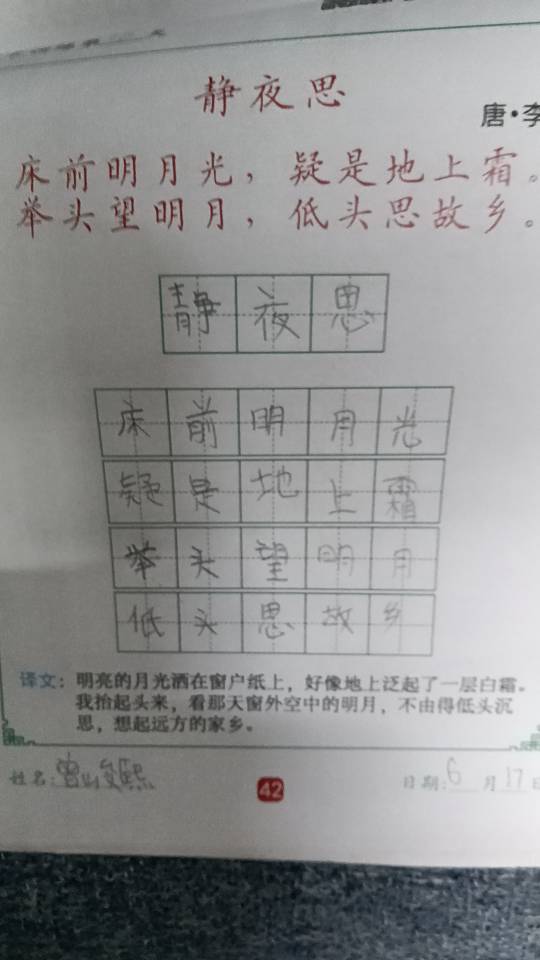 静夜思
唐·李
床前明月光，疑是地上霜。
举头望明月，低头思故乡。
静夜思
床前明月光
疑是地上霜
举头望明月
低头思故乡
译文：明亮的月光洒在窗户纸上，好像地上泛起了一层白霜。
我抬起头来，看那天窗外空中的明月，不由得低头沉
思，想起远方的家乡。
姓名：
42
日期：6月17日